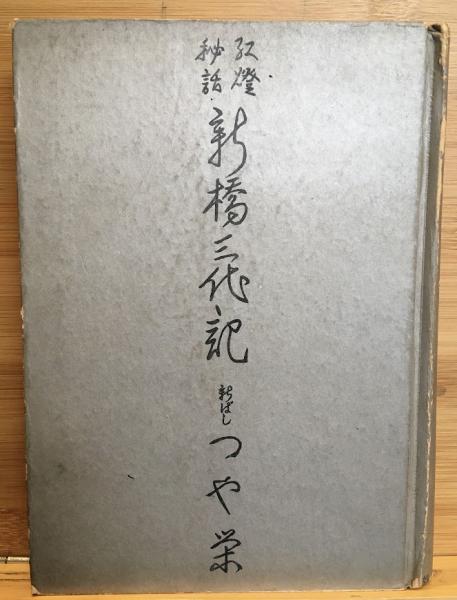 紅燈
秘話
新橋三代記
新ばし
つや栄